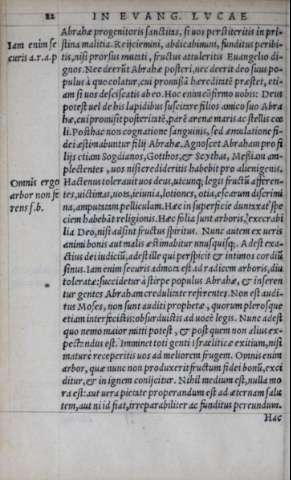 22 IN EVANG. LVCAE
Abrahæ progenitoris sanctitas, si uos perstiteritis in pri
Iam enim se
stina malitia. Reijciemini, abdicabimini, funditus peribi-
curis a.r.a.p
tis, nisi prorsus mutati, fructus attuleritis Euangelio di
gnos. Nec deerũt Abrahæ posteri, nec deerit deo suus po-
pulus à quo colatur, cui promissã hæreditatẽ præstet, eti-
am si uos desciscatis ab eo. Hoc enim cõfirmo uobis: Deus
potest uel de his lapidibus suscitare filios amico suo Abra
hæ, cui promisit posteritatẽ, parẽ arenæ maris ac stellis cœ
li. Posthac non cognatione sanguinis, sed æmulatione fi-
dei æstimabuntur filij Abrahæ. Agnoscet Abraham pro fi
lijs etiam Sogdianos, Gotthos, & Scythas, Messiam am-
plectentes, uos nisi credideritis habebit pro alienigenis.
Omnis ergo
Hactenus tolerauit uos deus, utcunq; legis fructũ afferen-
arbor non fe
tes, uictimas, uota, ieiunia, lotiones, otia, escarum discrimi
rens f.b.
na, amputatam pelliculam. Hæc in superficie duntaxat spe
ciem habebãt religionis. Hæc folia sunt arboris, execrabi
lia Deo, nisi adsint fructus spiritus. Nunc autem ex ueris
animi bonis aut malis æstimabitur unusquisq;. Adest exa-
ctius dei iudiciũ, adest ille qui perspicit & intimos cordiũ
sinus. Iam enim securis admota est ad radicem arboris, diu
toleratæ: succidetur à stirpe populus Abrahæ, & inseren
tur gentes Abraham credulitate referentes. Non est audi-
tus Moses, non sunt auditi prophetæ, quorum plerosque
etiam interfecistis: obsurduistis ad uocẽ legis. Nunc adest
quo nemo maior mitti potest, & post quem non alius ex-
pectandus est. Imminet toti genti Israëliticæ exitium, nisi
mature receperitis uos ad meliorem frugem. Omnis enim
arbor, quæ nunc non produxerit fructum fidei bonũ, exci
ditur, & in ignem conijcitur. Nihil medium est, nulla mo
ra est: aut uera pietate properandum est ad æternam salu
tem, aut ni id fiat, irreparabiliter ac funditus pereundum.
Hæc